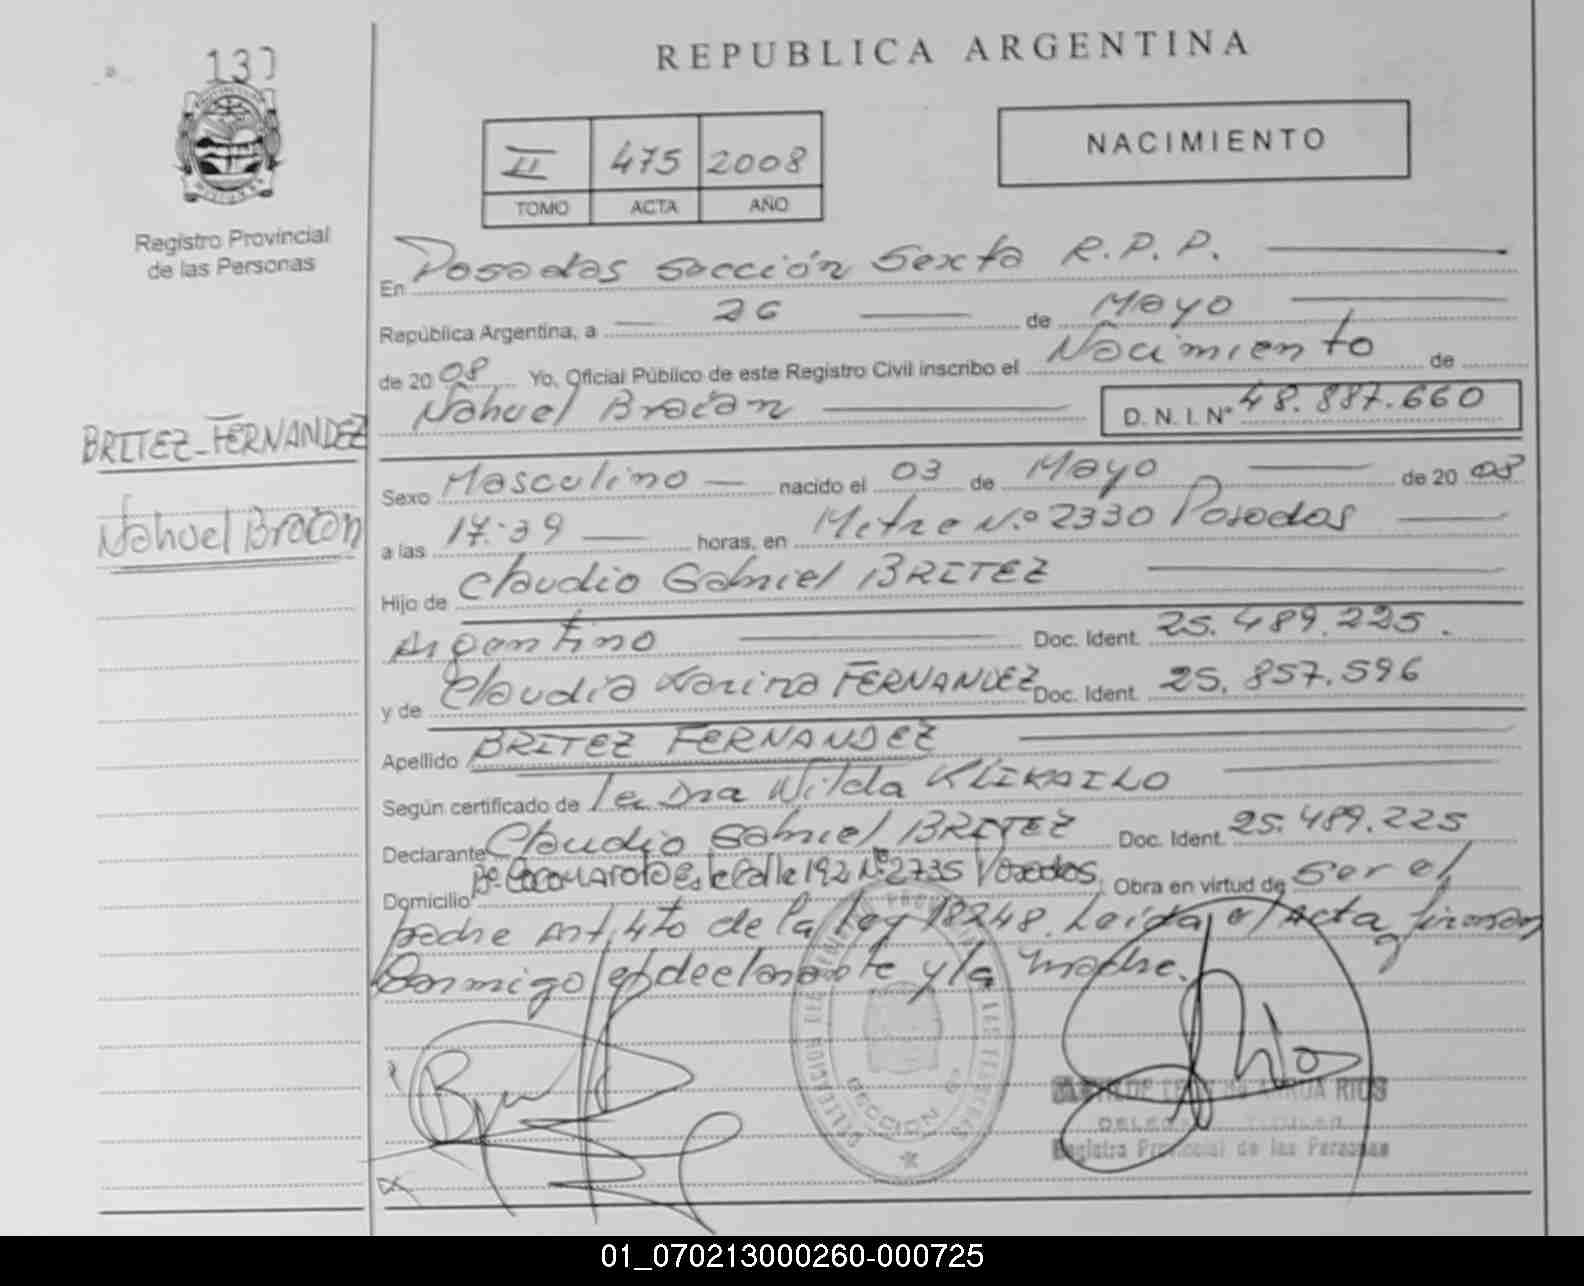 137
REPUBLICA ARGENTINA
NACIMIENTO
II 475 2008
TOMO ACTA AÑO
Registro Provincial
de las Personas
En Posadas Sección Sexta R.P.P.
República Argentina, a 26 de Mayo
de 2008 Yo, Oficial Público de este Registro Civil inscribo el Nacimiento de
Nahuel Braian D. N. I. N° 48.887.660
BRITEZ-FERNANDEZ
Nahuel Braian
Sexo Masculino nacido el 03 de Mayo de 2008
a las 17:39 horas, en Mitre N.º 2330 Posadas
Hijo de Claudio Gabriel BRITEZ
Argentino Doc. Ident. 25.489.225.
y de Claudia Karina FERNANDEZ Doc. Ident. 25.857.596
Apellido BRITEZ FERNANDEZ
Según certificado de la Dra Wilda KLIKAILO
Declarante Claudio Gabriel BRITEZ Doc. Ident. 25.489.225
Domicilio Bº Este Calle 192 Nº 2735 Posadas Obra en virtud de Ser el
padre Art 4to de la ley 18248. Leída el Acta, firman
Conmigo el declarante y la madre.
SECCION 6ª
RIOS
Registro Provincial de las Personas
01_070213000260-000725